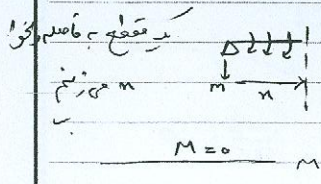 یک مقطع به فاصله دلخواه
x می زنیم
M x
M = 0 M